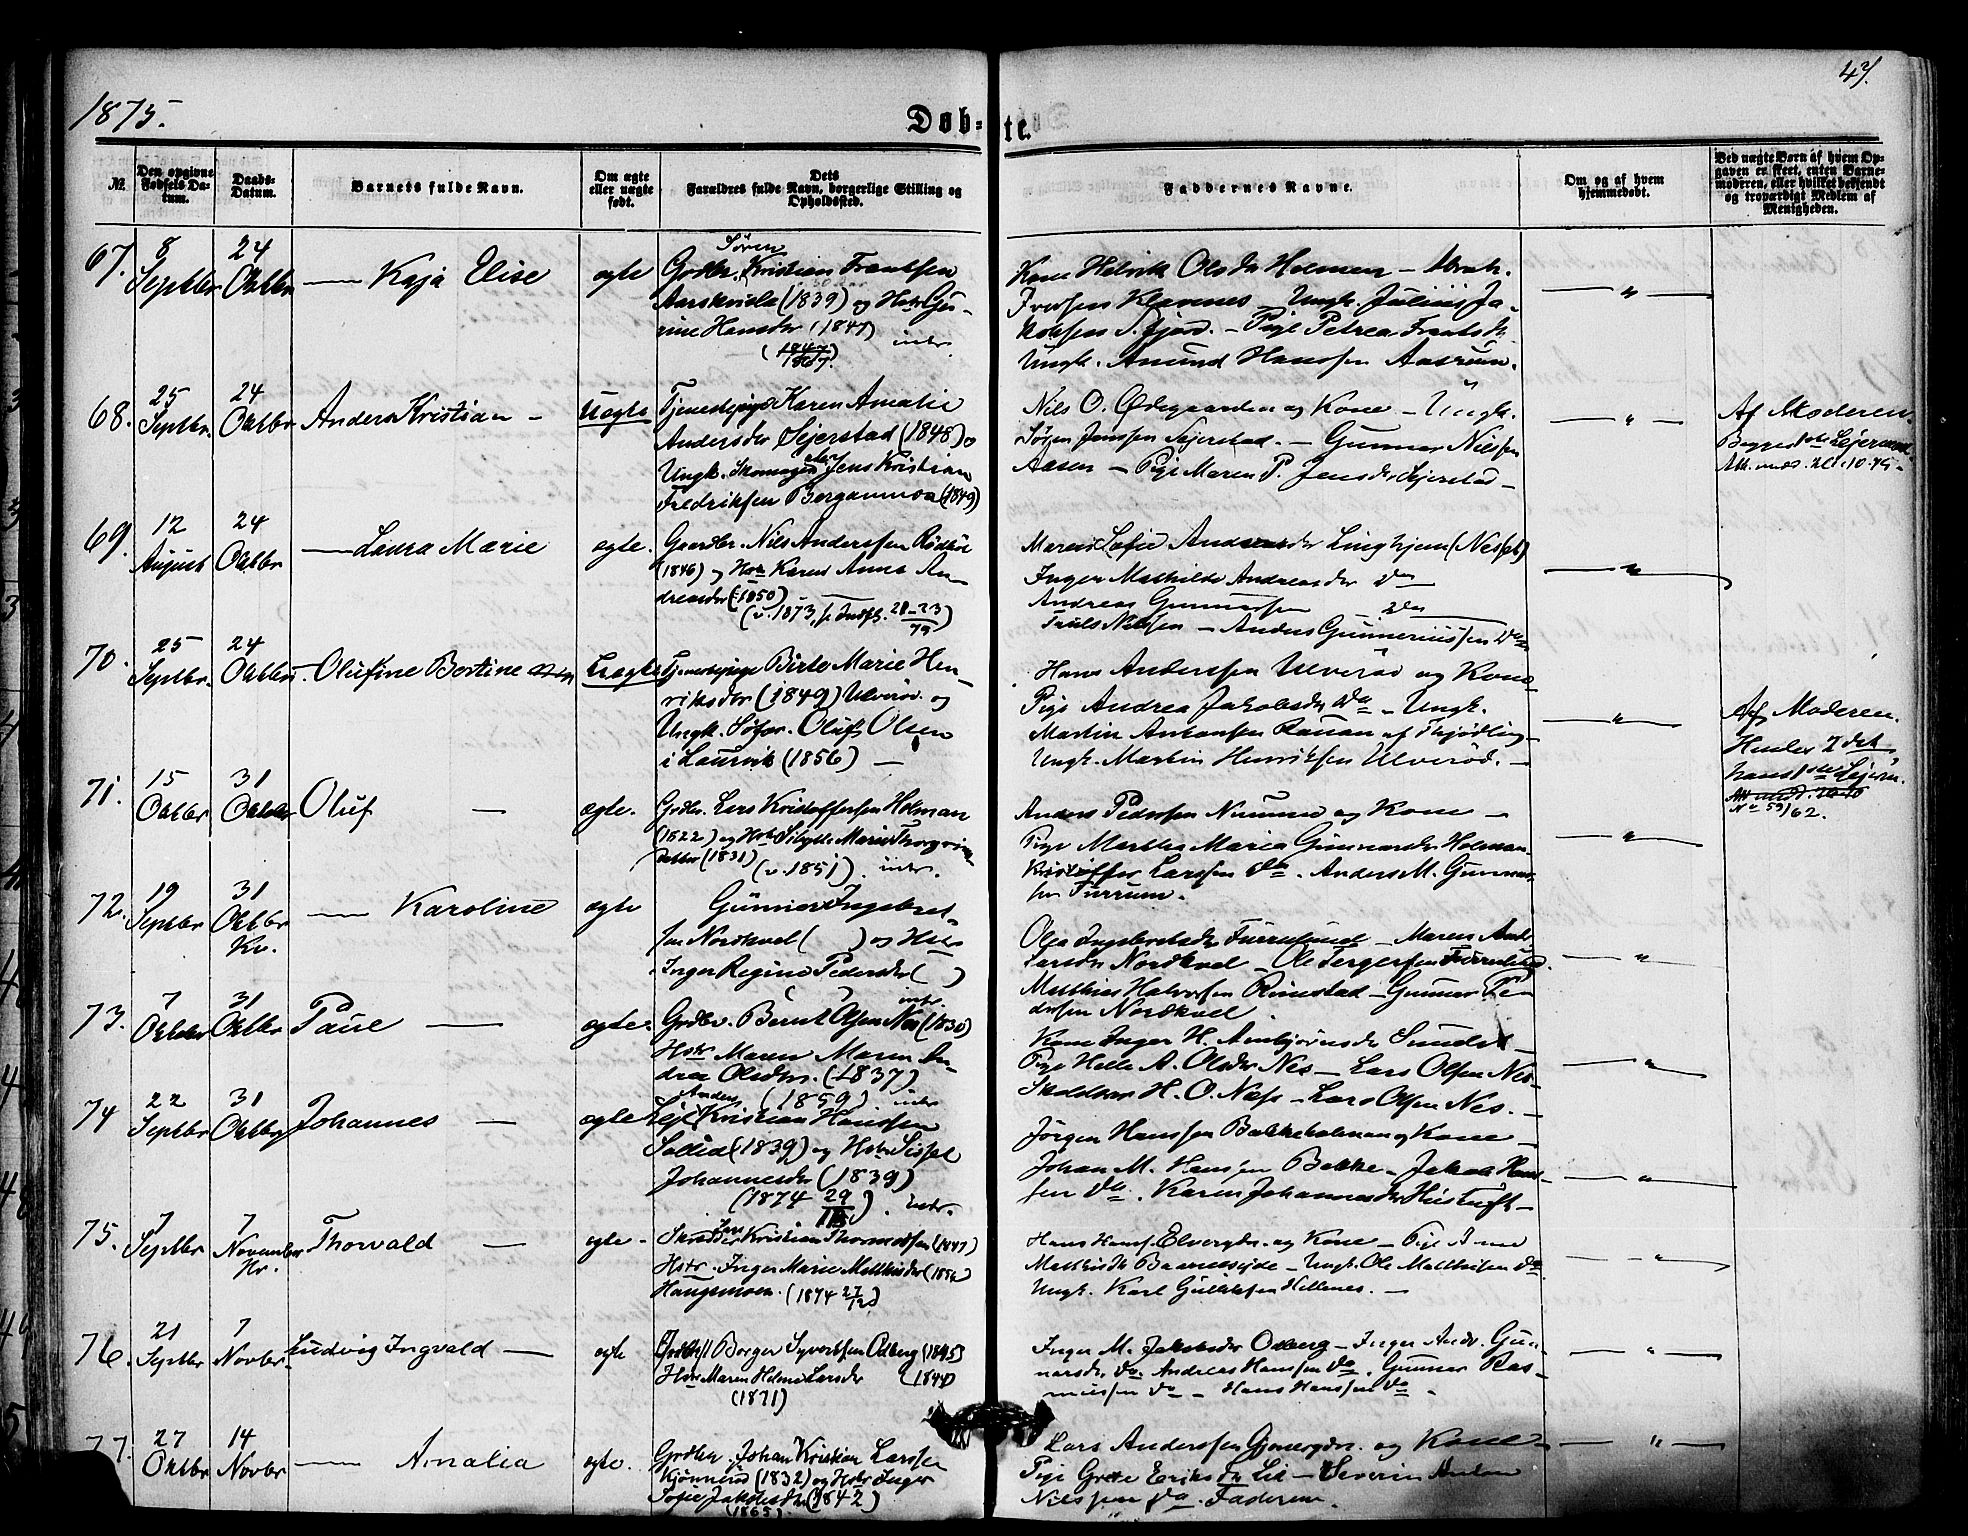 1875.
47.
Døb-te.
№
Den opgivne Fødsels Datum.
Daabs-Datum.
Barnets fulde Navn.
Om ægte eller uægte født.
Dets Forældres fulde Navn, borgerlige Stilling og Opholdssted.
Faddernes Navne.
Om og af hvem hjemmedøbt.
Ved uægte Børn af hvem Opgaven er skeet, enten Barnemoderen, eller hvilket bekjendt og troværdigt Medlem af Menigheden.
67. 8 Septbr 24 Oktbr — Kaja Elise ægte
Søren
Grdbr. Kristian Frantsen
(1839) og Hstr Gu-
rine Hansdr (1847) intr.
Kone Helvik Olsdr Holmen — Abrah.
Iversen Klavenes — Ungk. Julius Ja-
kobsen S. Fjord. — Pige Petrea Frantsdr
Ungk. Amund Hanssen Aasrum.
— " —
68. 25 Septbr. 24 Oktbr Anders Kristian — Uægte
Tjenestepige Karen Amalie
Andersdr Sejerstad (1848) o
Ungk. Skomager Jens Kristian
Fredriksen Berganmoa (1849)
Nils O. Ødegaarden og Kone — Ungk.
Sørgen Jenssen Sejerstad. — Gunnar Nilssen
Aasen — Pige Maren P. Jensdr Sejerstad —
— " —
Af Moderen.
Begges 1ste Lejermaal
69. 12 August 24 Oktbr — Laura Marie ægte.
Gaardbr. Nils Anderssen Rødbøl
(1846) og Hstr Karen Anna An-
dreasdr (1850)
(v. 1873, 
Maren Sofie Andreasdr Lingkjem (Nesset)
Inger Mathilde Andreasdr do
Andreas Gunnarssen do
Truls Nilssen — Anders Gunneriussen do
— " —
70. 25 Septbr. 24 Oktbr. Olufine Bertine Uægte
Tjenestepige Birte Marie Hen-
riksdr (1849) Ulverød. og
Ungk. Søfar. Oluf Olsen
i Laurvik (1856) —
Hans Anderssen Ulverød og Kone
Pige Andrea Jakobsdr do — Ungk.
Martin Antonsen Rauan af Thjødling —
Ungk. Martin Henriksen Ulverød. —
— " —
Af Moderen.
Hendes 2det,
hans 1ste Lejerm.
No 59/62.
71. 15 Oktbr 31 Oktbr Oluf — ægte.
Grdbr. Lars Kristoffersen Holman
(1822) og Hstr Sibylle Marie Thorgrims
datter (1831)
(v. 1851). intr.
Anders Pedersen Numme og Kone —
Pige Martha Maria Gunnarsdr Holman
Kristoffer Larssen do. Anders M. Gunnar-
sen Furrum.
— " —
72. 19 Septbr 31 Oktbr Kv. — Karoline ægte
Gunnar Ingebret-
sen Nordkvel ( ) og Hstr
Inger Regine Pedersdr ( )
Olga Ingebretsdr Furrulund — Maren And.
Larsdr Nordkvel — Ole Tergersen Furrulund.
Mathias Halvorsen Rimstad — Gunnar Pe-
dersen Nordkvel.
— " —
73. 7 Oktbr 31 Oktbr Paul — ægte.
intr.
Grdbr. Bernt Olsen Nes (1830)
Hstr Maren An-
drea Olsdtr. (1837).
(1859) intr
Kone Inger H. Arnbjørnsdr Sundet —
Pige Helle A. Olsdr Nes — Lars Olsen Nes —
H. O. Næss — Lars Olsen Nes. —
— " —
74 22 Septbr 31 Oktbr Johannes — ægte
Anders
Lejl. Kristian Hanssen
Sollid (1839) og Hstr Sissel
Johannesdr (1839)
(1874 29/11). intr.
Jørgen Hanssen Bakkeholman og Kone —
Johan M. Hanssen Bakke — Jakob Hans-
sen do. Karen Johannesdr —
— " —
75. 7 Septbr 7 November Hr. Thorvald — ægte —
Lars
Skrædder Kristian Thormodsen (1847)
Hstr. Inger Marie Matthisdr (1854)
Haugsmoen. (1874 27/12)
Hans Hanss. Elvergdn. og Kone — Pige Anne
Mathisdr — Ungk. Ole Matthisen do
Ungk. Karl Gulliksen Hellenes. —
— " —
76. 21 Septbr 7 Novbr. Ludvig Ingvald — ægte
Grdbr. Borger Syvertsen Odberg (1845)
Hstr Maren Helene Larsdr (1844)
(1871)
Inger M. Jakobsdr Odberg — Inger Andr. Gun-
narsdr. do. Andreas Hanssen do. Gunnar Ras-
mussen do — Hans Hanssen do —
— " —
77. 27 Oktbr 14 Novbr — Amalia ægte.
Grdbr. Johan Kristian Larssen
Kjønnerød (1832) og Hstr Inger
Sofie Jakobsdr (1842)
(1865).
Lars Anderssen og Kone —
Pige Grete Eriksdr Lie — Severin Anton
Nilssen do. Faderen.
— " —